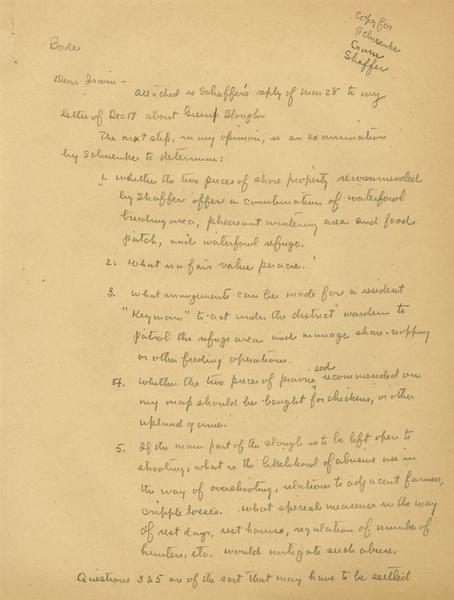 Copy for
Schuenke
Crum
Shaffer
Bode
Dear Irwin —
Attached is Schaffer's reply of Mar 28 to my
letter of Dec 17 about Slough.
The next step, in my opinion, is an examination
by Schuenke to determine:
1. whether the two pieces of shore property recommended
by Shaffer offers a combination of waterfowl
breeding area, pheasant wintering area and food
patch, and waterfowl refuge.
2. What is a fair value per acre.
3. What arrangements can be made for a resident
"Keyman" to act under the district warden to
patrol the refuge area and manage share-cropping
or other feeding operations.
4. whether the two pieces of prairie sod recommended on
my map should be bought for chickens, or other
upland game.
5. If the main part of the slough is to be left open to
shooting, what is the likelihood of abusive use in
the way of overshooting, relations to adjacent farmers,
cripple losses. What special measures in the way
of rest days, rest hours, regulation of number of
hunters, etc. would mitigate such abuse.
Questions 3 & 5 are of the sort that may have to be settled